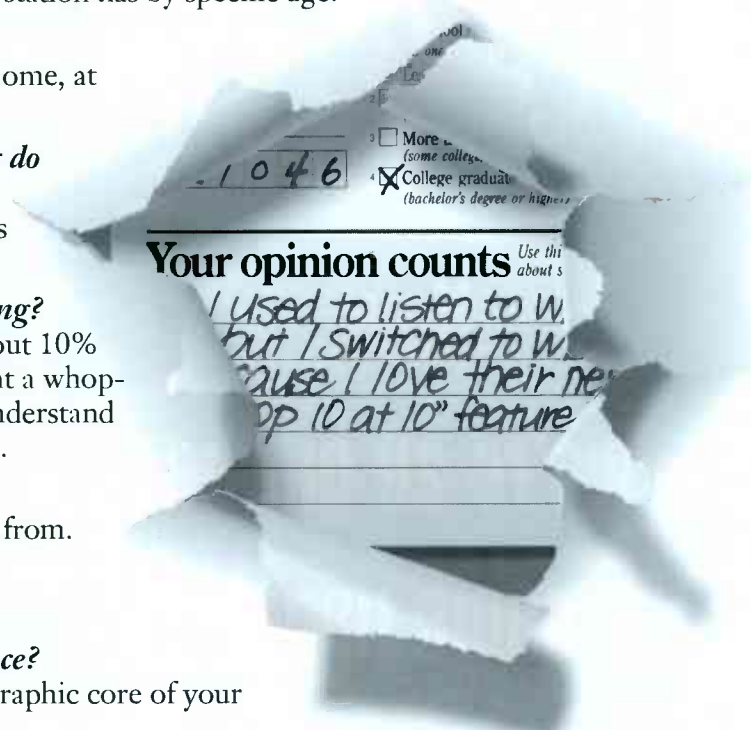 station has by specific age.
ome, at
do
s
ng?
out 10%
at a whop-
nderstand
.
from.
ce?
raphic core of your
ool
one
Les
2
3 More
(some colleg
.1046
4 College graduat
(bachelor's degree or higher)
Your opinion counts Use thi
about s
I used to listen to W
but I switched to W
ause I love their ne
op 10 at 10" feature